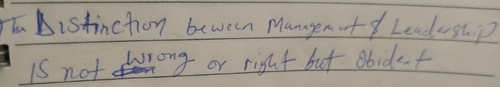 The Distinction beween Management & Leadership
IS not wrong or right but Obident